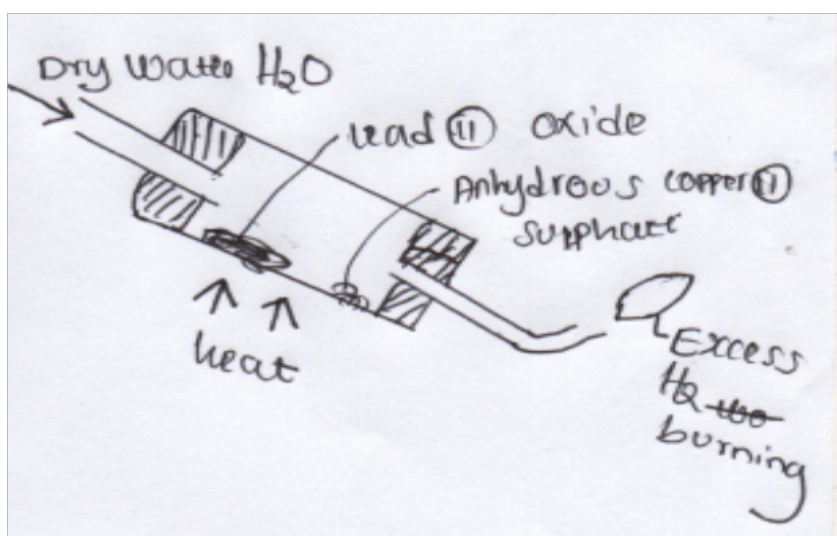 Dry Water H₂O
Lead (II) oxide
Anhydrous copper (II)
sulphate
heat
Excess
H₂
burning